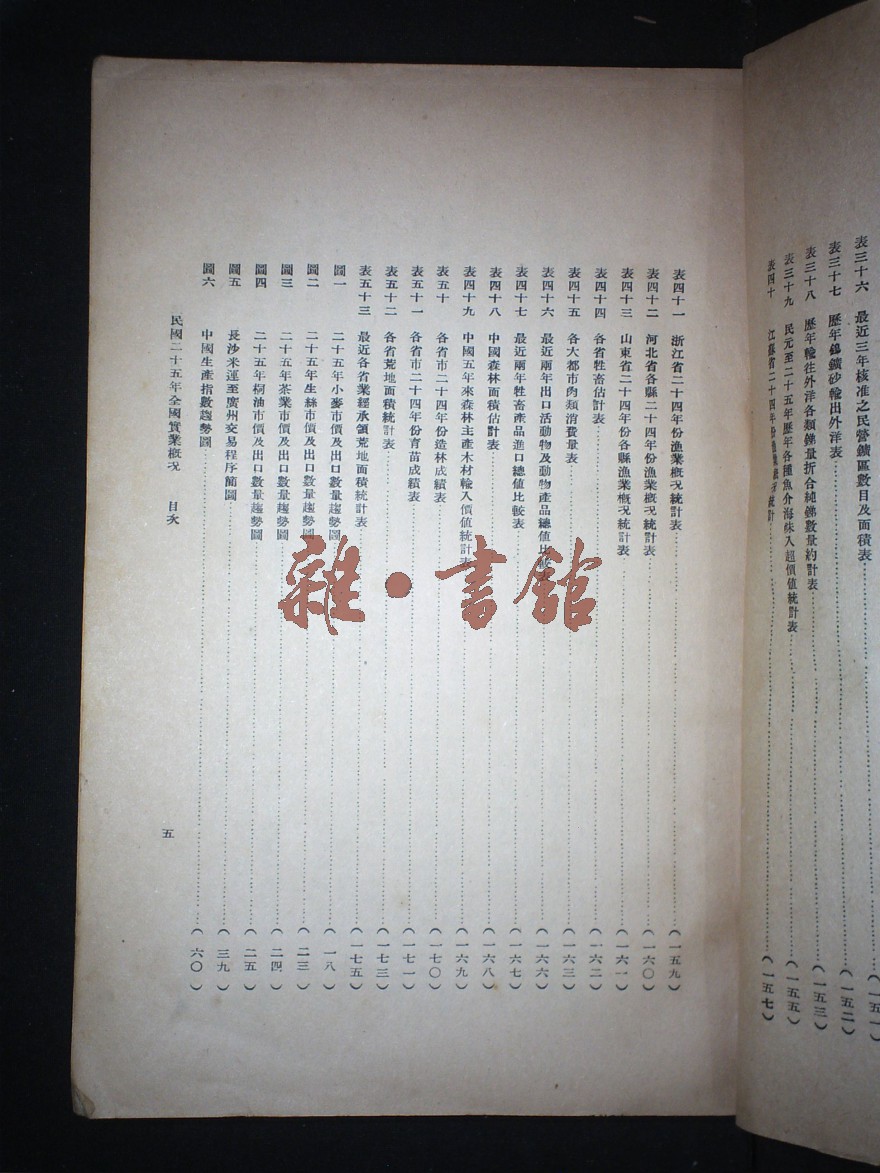 表三十六　最近三年核准之民營鑛區數目及面積表
表三十七　歷年鎢鑛砂輸出外洋表（一五二）
表三十八　歷年輸往外洋各類銻量折合純銻數量約計表（一五三）
表三十九　民元至二十五年歷年各種魚介海味入超價值統計表（一五五）
表四十　江蘇省二十四年份漁業概況統計（一五七）
表四十一　浙江省二十四年份漁業概況統計表（一五九）
表四十二　河北省各縣二十四年份漁業概況統計表（一六〇）
表四十三　山東省二十四年份各縣漁業概況統計表（一六一）
表四十四　各省牲畜估計表（一六二）
表四十五　各大都市肉類消費量表（一六三）
表四十六　最近兩年出口活動物及動物產品總值比較表（一六六）
表四十七　最近兩年牲畜產品進口總值比較表（一六七）
表四十八　中國森林面積估計表（一六八）
表四十九　中國五年來森林主產木材輸入價值統計表（一六九）
表五十　各省市二十四年份造林成績表（一七〇）
表五十一　各省市二十四年份育苗成績表（一七一）
表五十二　各省荒地面積統計表（一七三）
表五十三　最近各省業經承領荒地面積統計表（一七五）
圖一　二十五年小麥市價及出口數量趨勢圖（一八）
圖二　二十五年生絲市價及出口數量趨勢圖（二三）
圖三　二十五年茶業市價及出口數量趨勢圖（二四）
圖四　二十五年桐油市價及出口數量趨勢圖（二五）
圖五　長沙米運至廣州交易程序簡圖（三九）
圖六　中國生產指數趨勢圖（六〇）
民國二十五年全國實業概況　目次
五
雜·書館